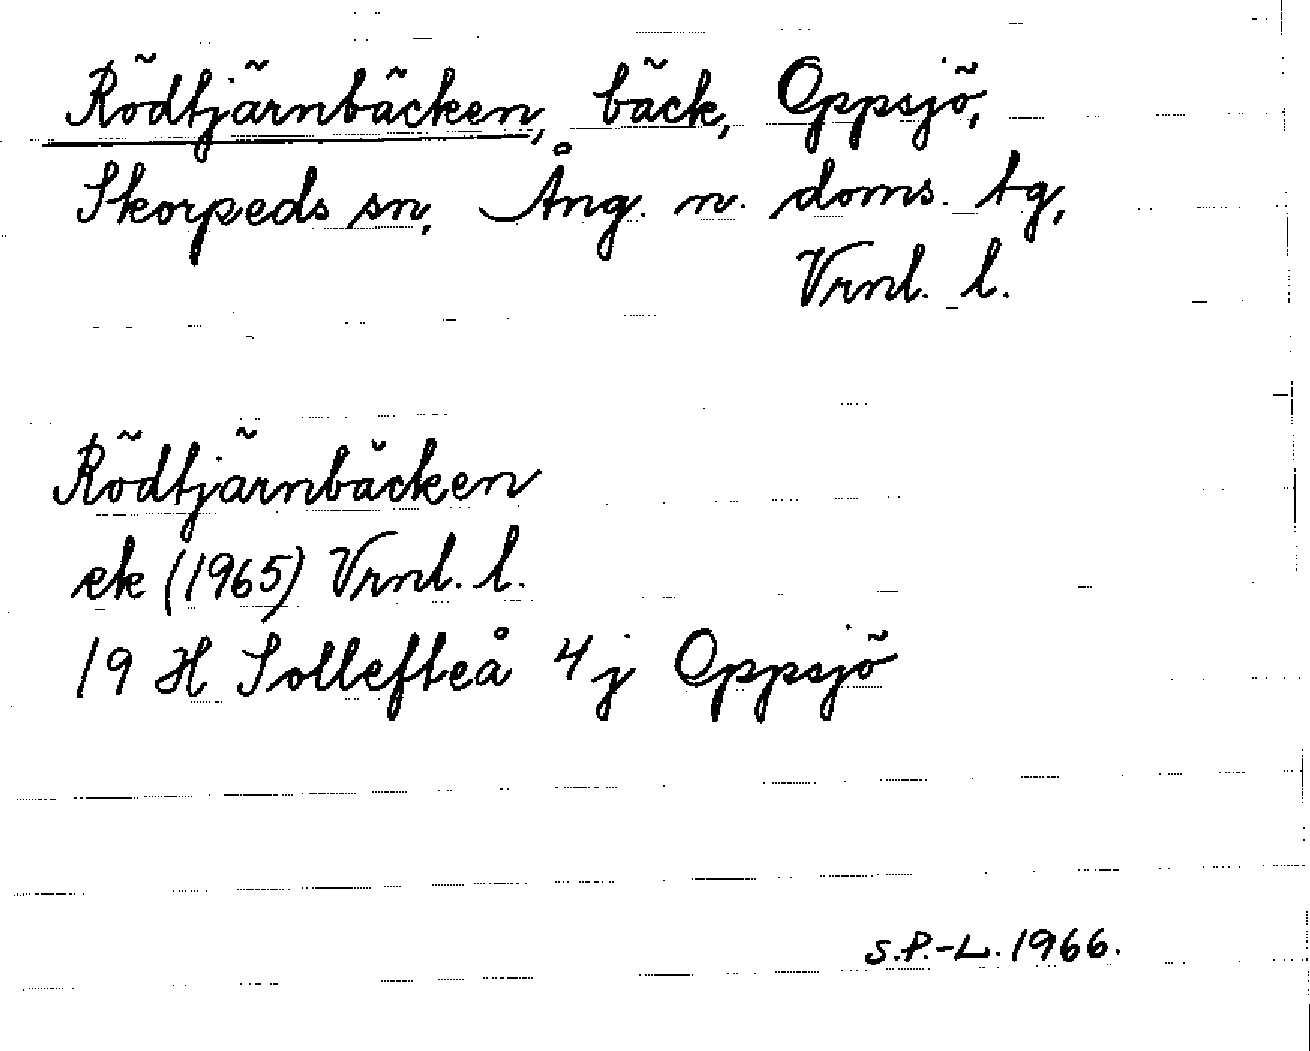 Rödtjärnbäcken, bäck, Oppsjö,
Skorpeds sn, Ång. n. doms. tg,
Vrnl. l.
Rödtjärnbäcken
ek (1965) Vrnl. l.
19 H Sollefteå 4j Oppsjö
S.P.-L. 1966.